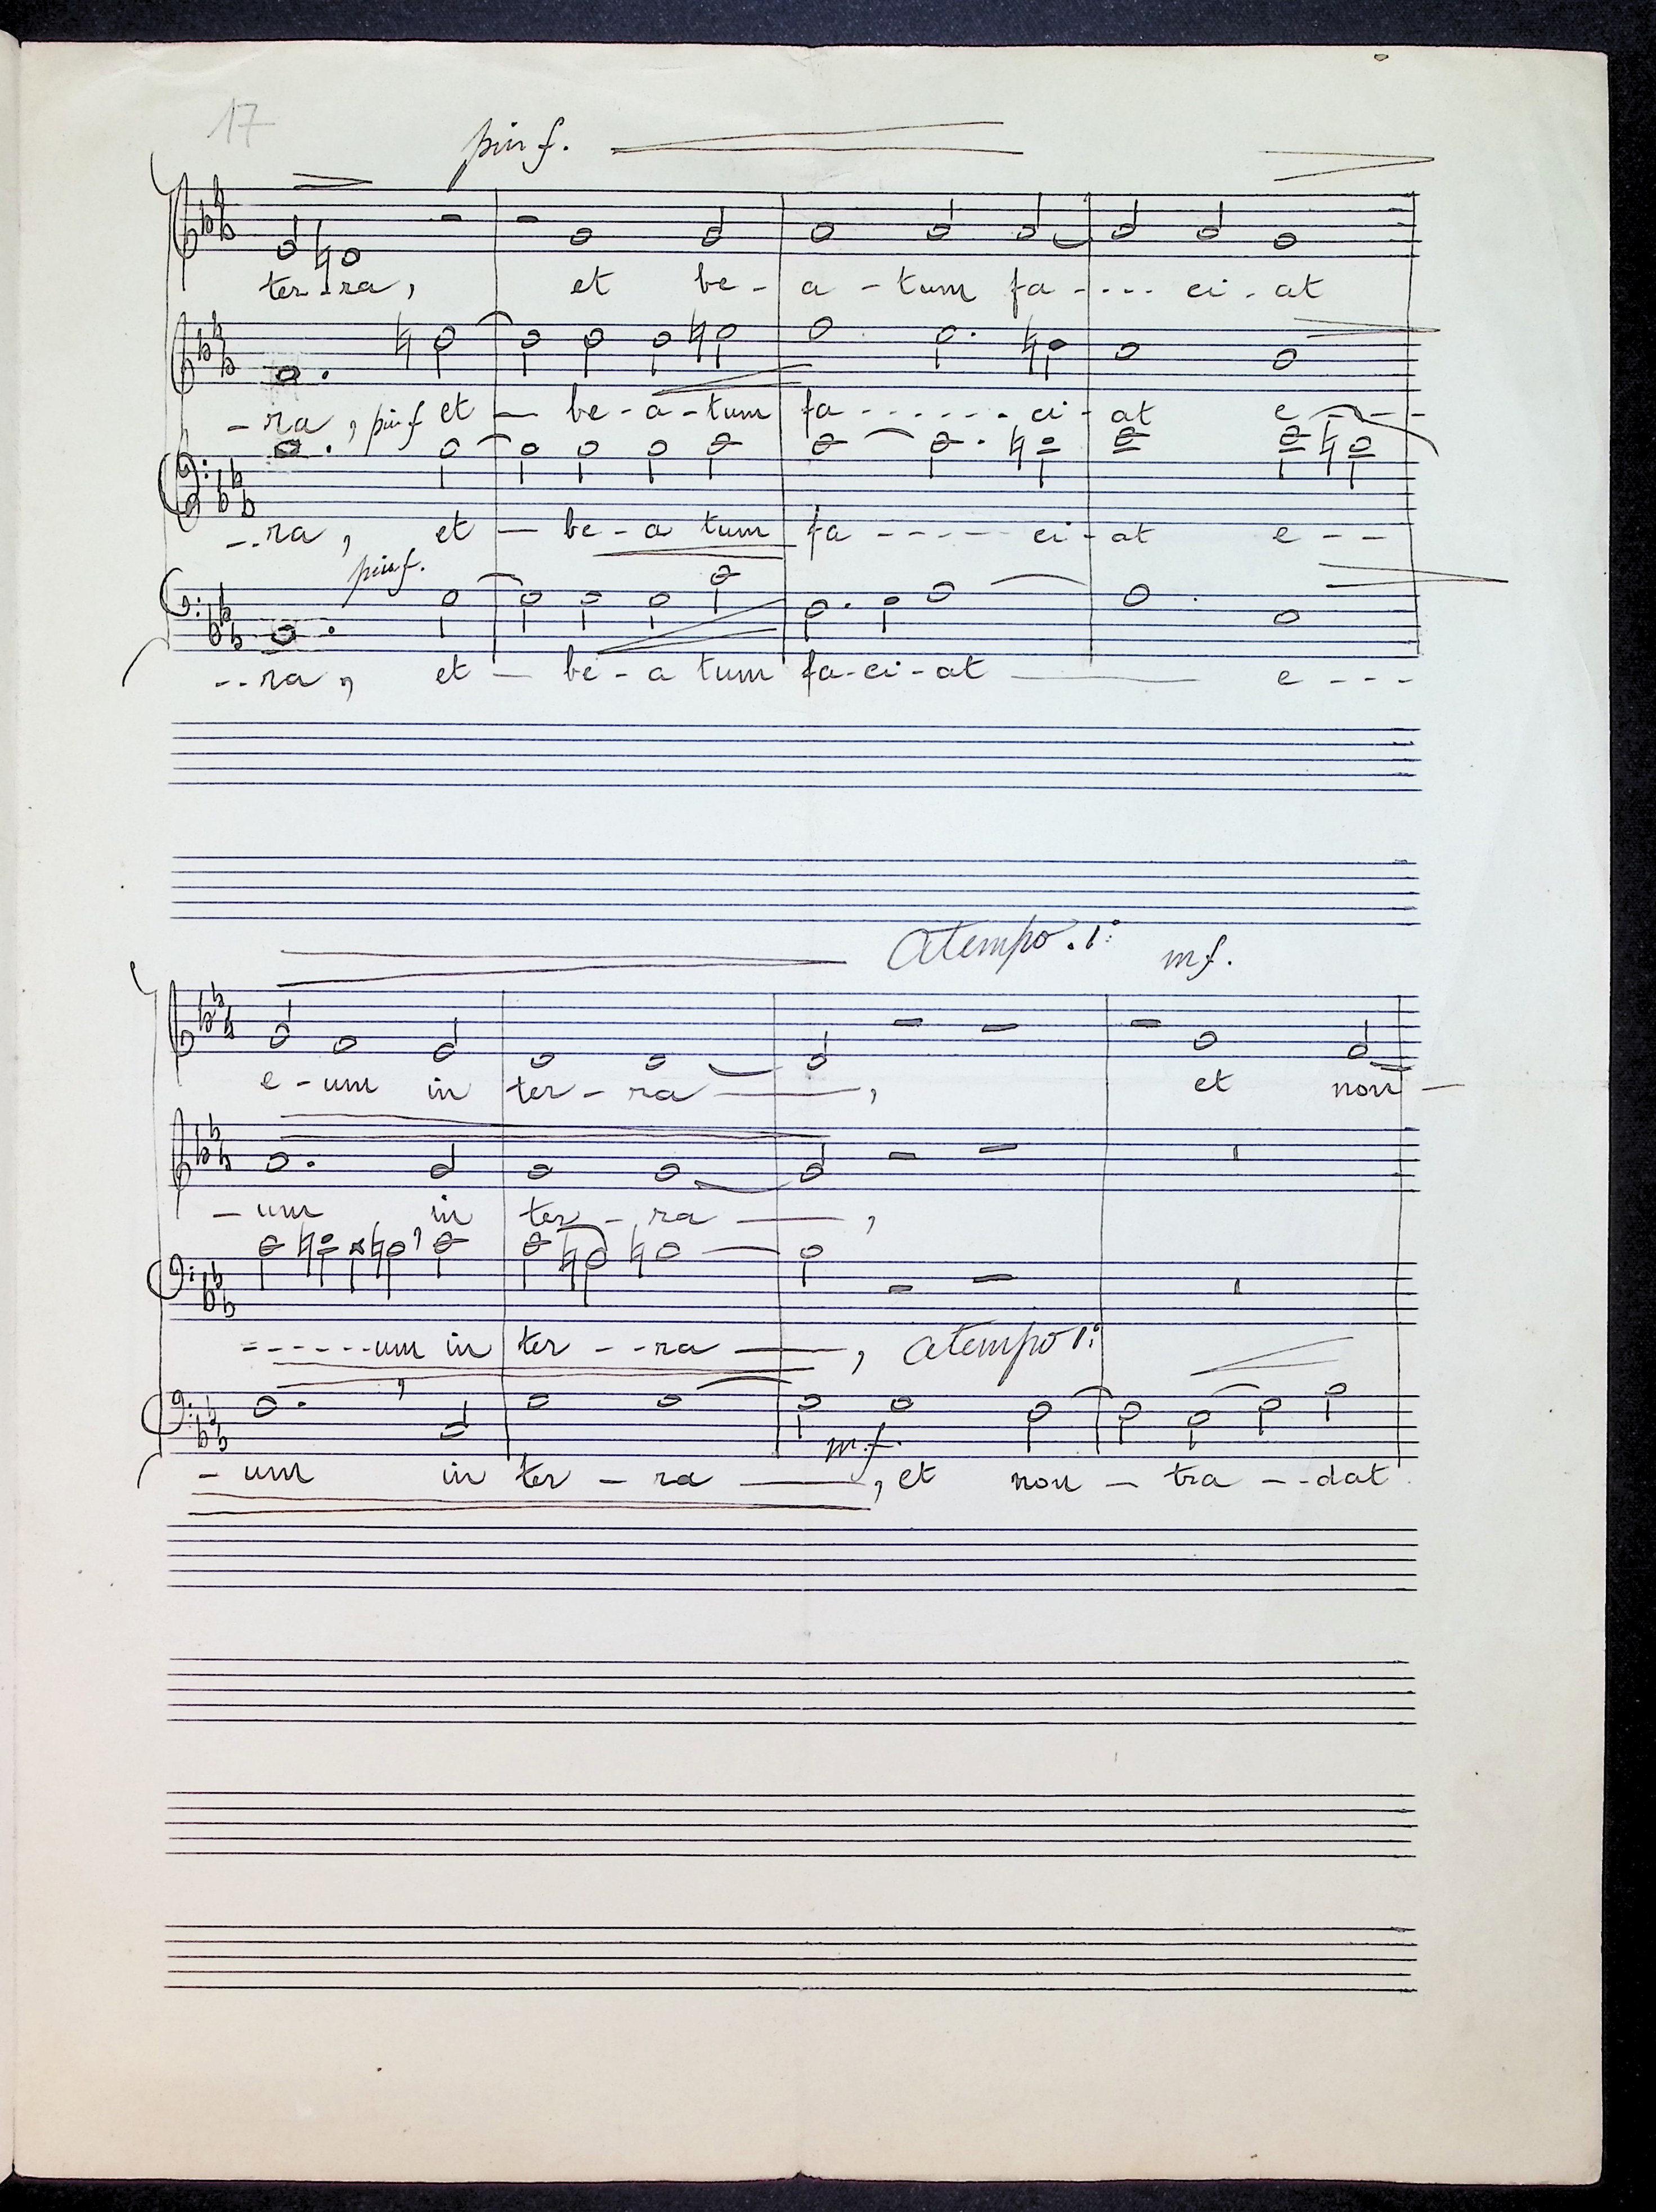 17
piu f.
ter - ra, et be - a - tum fa - - - - ci - at
- ra, piu f et — be - a - tum fa - - - - - - - ci - at e - - -
- - ra, et — be - a tum fa - - - - - ci - at e - - -
piu f.
- - ra, et — be - a tum fa - ci - at — e - - -
a tempo. 1º: mf.
e - um in ter - ra —, et non —
- um in ter - ra —,
- - - - - - um in ter - - ra —, a tempo 1º:
m.f.
- um in ter - ra —, et non — tra - - dat